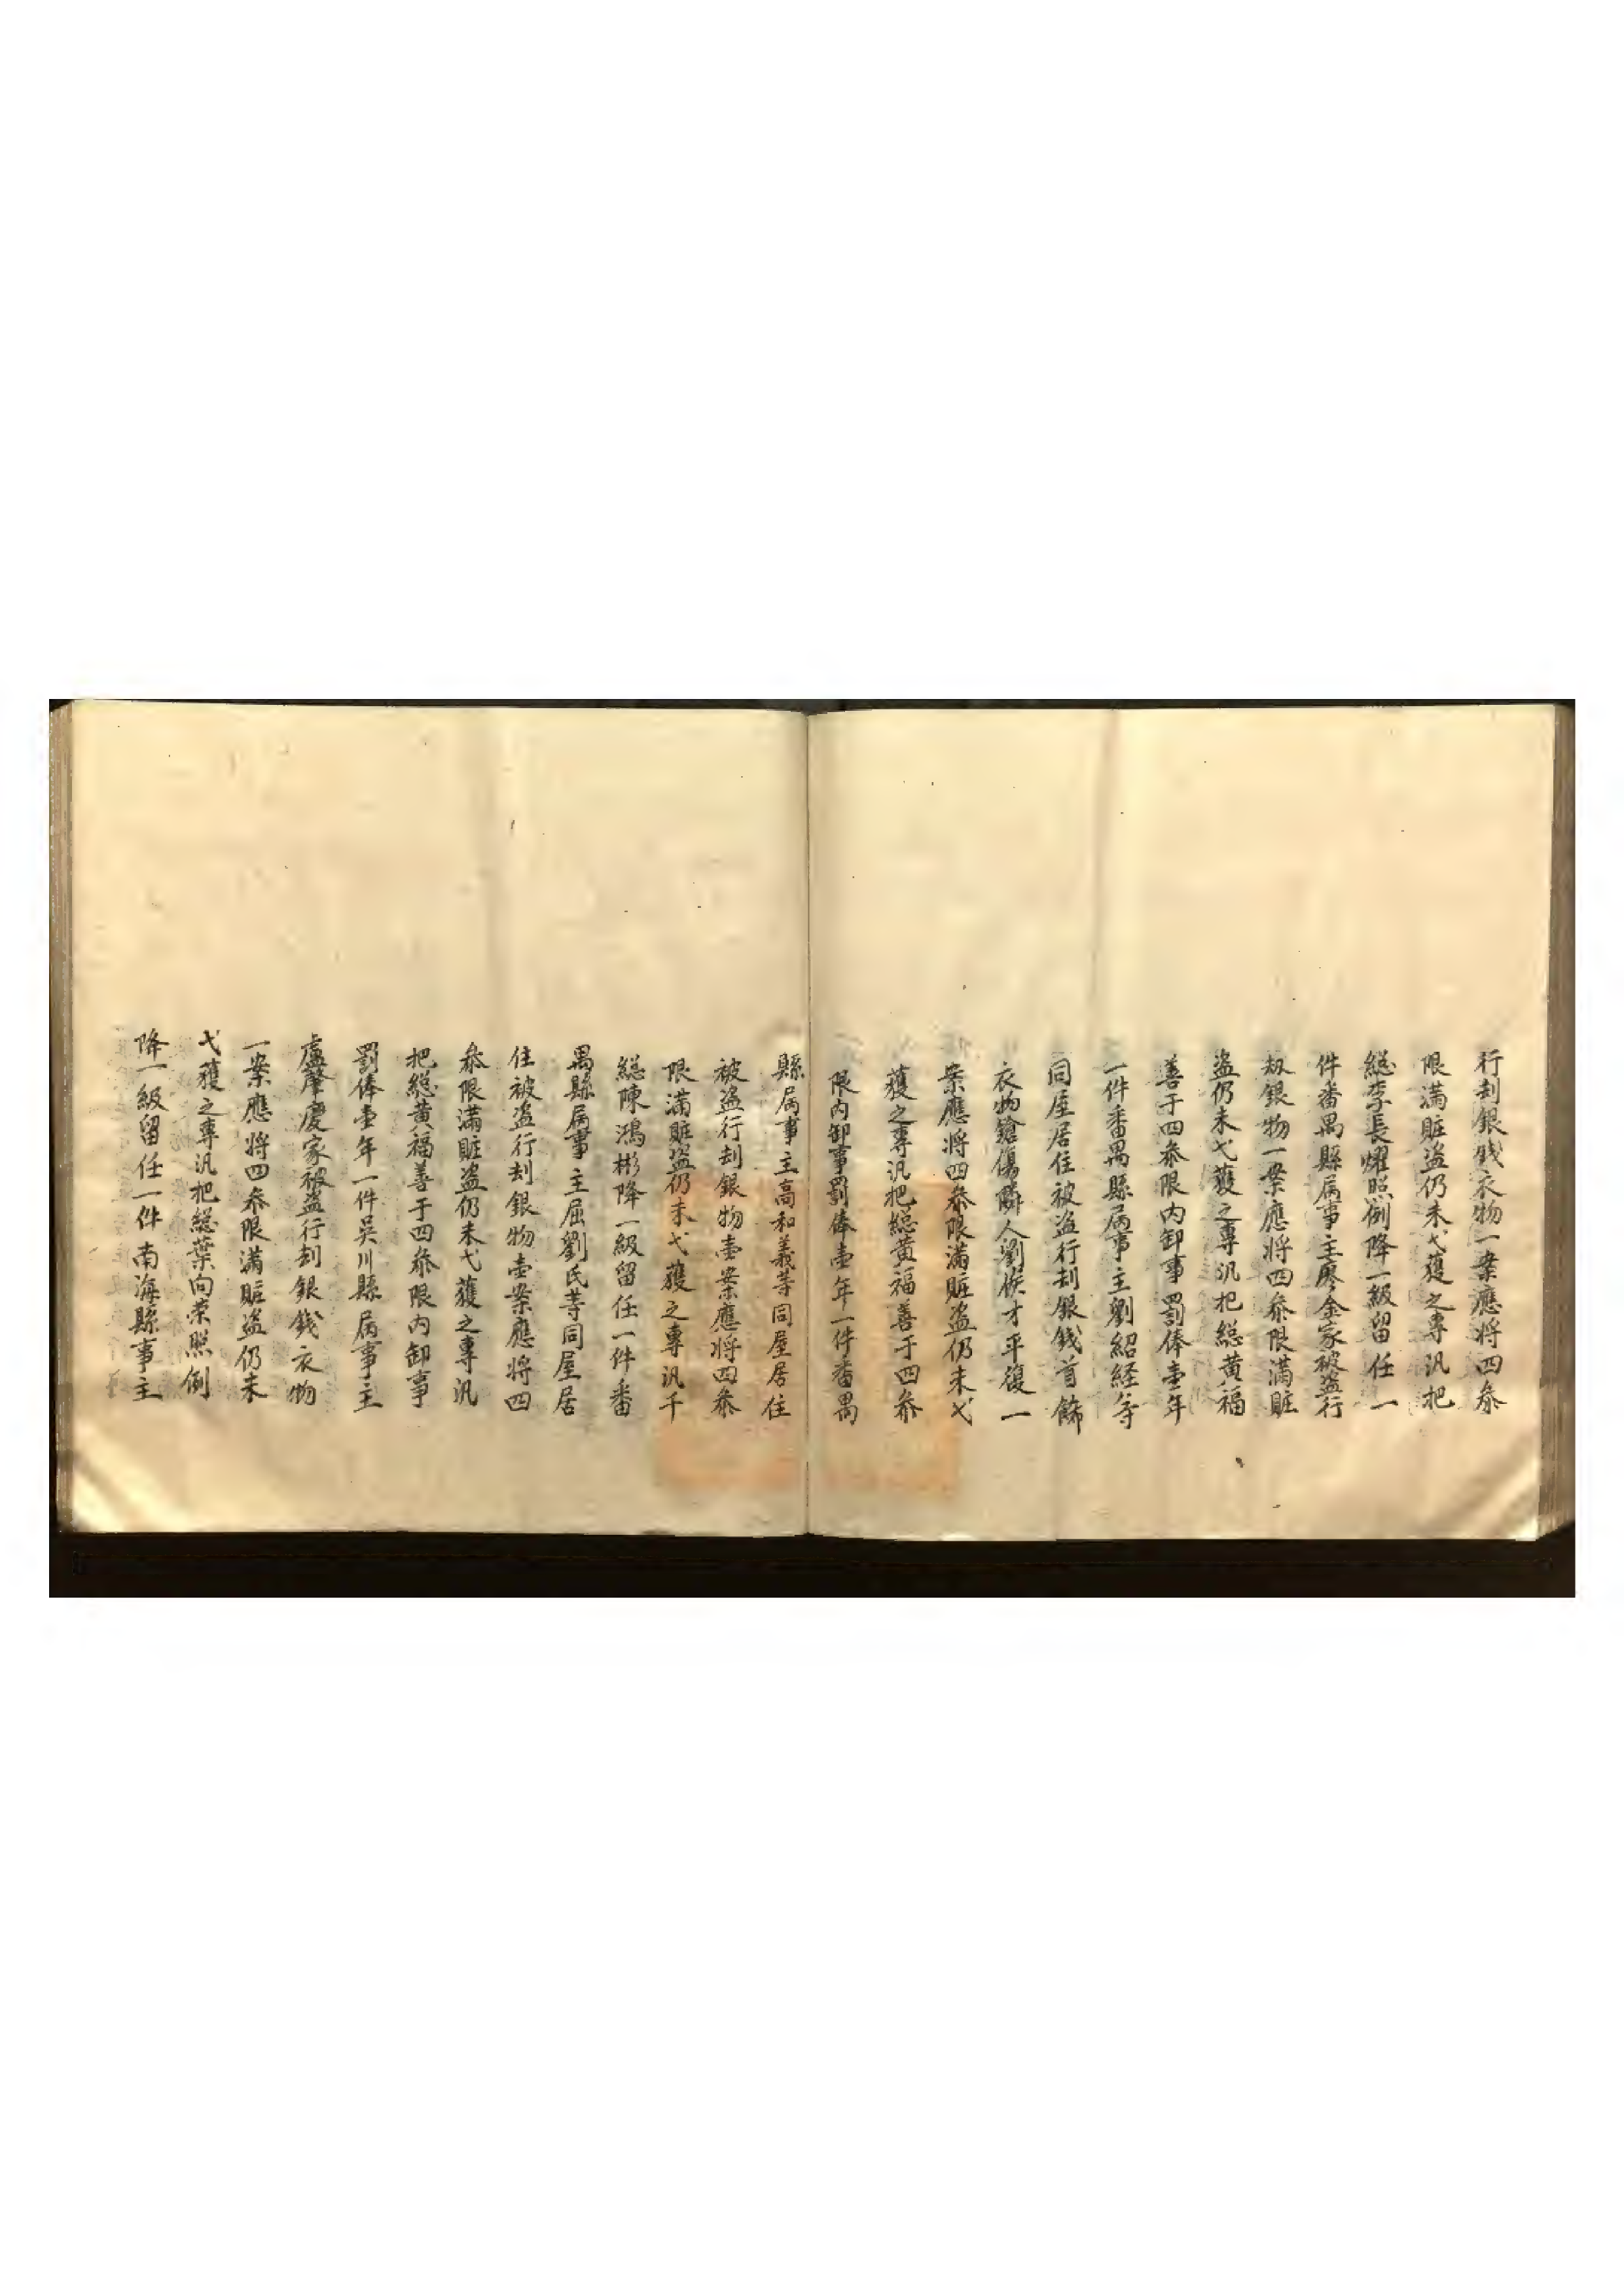 行刦銀戔衣物一案應将四叅
限滿賍盗仍未弋獲之專汛把
総李長燿照例降一級留任一
件畨禺縣属事主廖金家被盗行
刼銀物一案應将四叅限滿賍
盗仍未弋獲之專汛把総黄福
善于四叅限内卸事罰俸壹年
一件畨禺縣属事主劉紹経等
同屋居住被盗行刦銀錢首飾
衣物鎗傷隣人劉才平復一
案應将四叅限滿賍盗仍未弋
獲之專汛把総黄福善于四叅
限内卸事罰俸壹年一件畨禺
縣属事主高和義等同屋居住
被盗行刦銀物壹案應将四叅
限滿賍盗仍未弋獲之專汛千
総陳鴻彬降一級留任一件畨
禺縣属事主屈劉氏等同屋居
住被盗行刦銀物壹案應将四
叅限滿賍盗仍未弋獲之專汛
把総黄福善于四叅限内卸事
罰俸壹年一件吳川縣属事主
盧肇慶家被盗行刦銀錢衣物
一案應将四叅限滿賍盗仍未
弋獲之專汛把総葉向荣照例
降一級留任一件南海縣事主